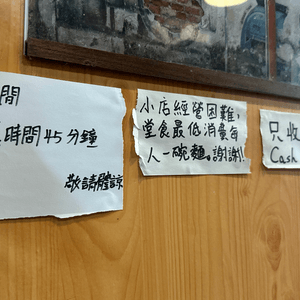 間
時間45分鐘
敬請體諒
小店經營困難,
堂食最低消費每
人一碗麵。謝謝!!
只收
Cash